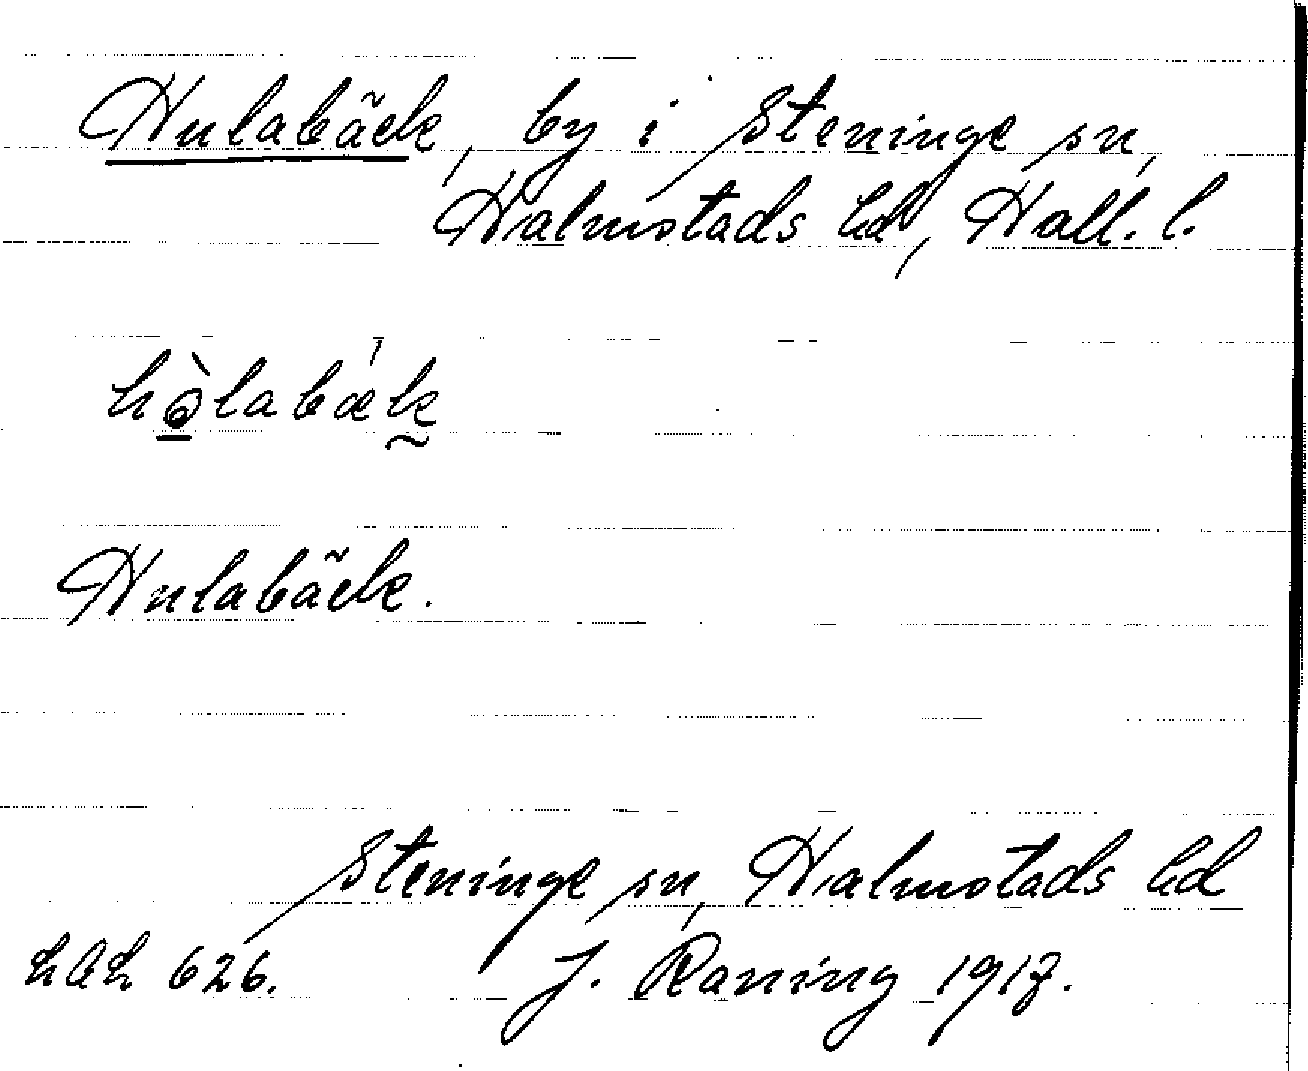 Hulabäck, by i Steninge sn,
Halmstads hd, Hall. l.
hòlabæk
Hulabäck.
Steninge sn, Halmstads hd
626. J. Raning 1917.